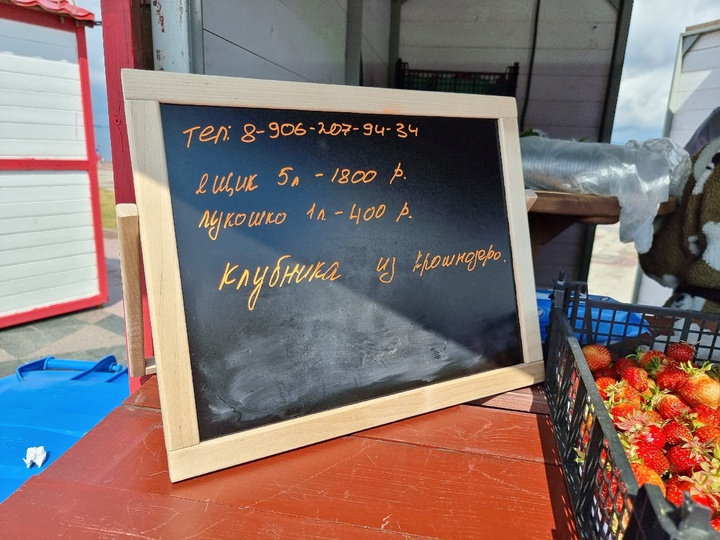 тел: 8-906-207-94-34
ящик 5л - 1800 р.
лукошко 1л - 400 р.
клубника из крошнодаро.